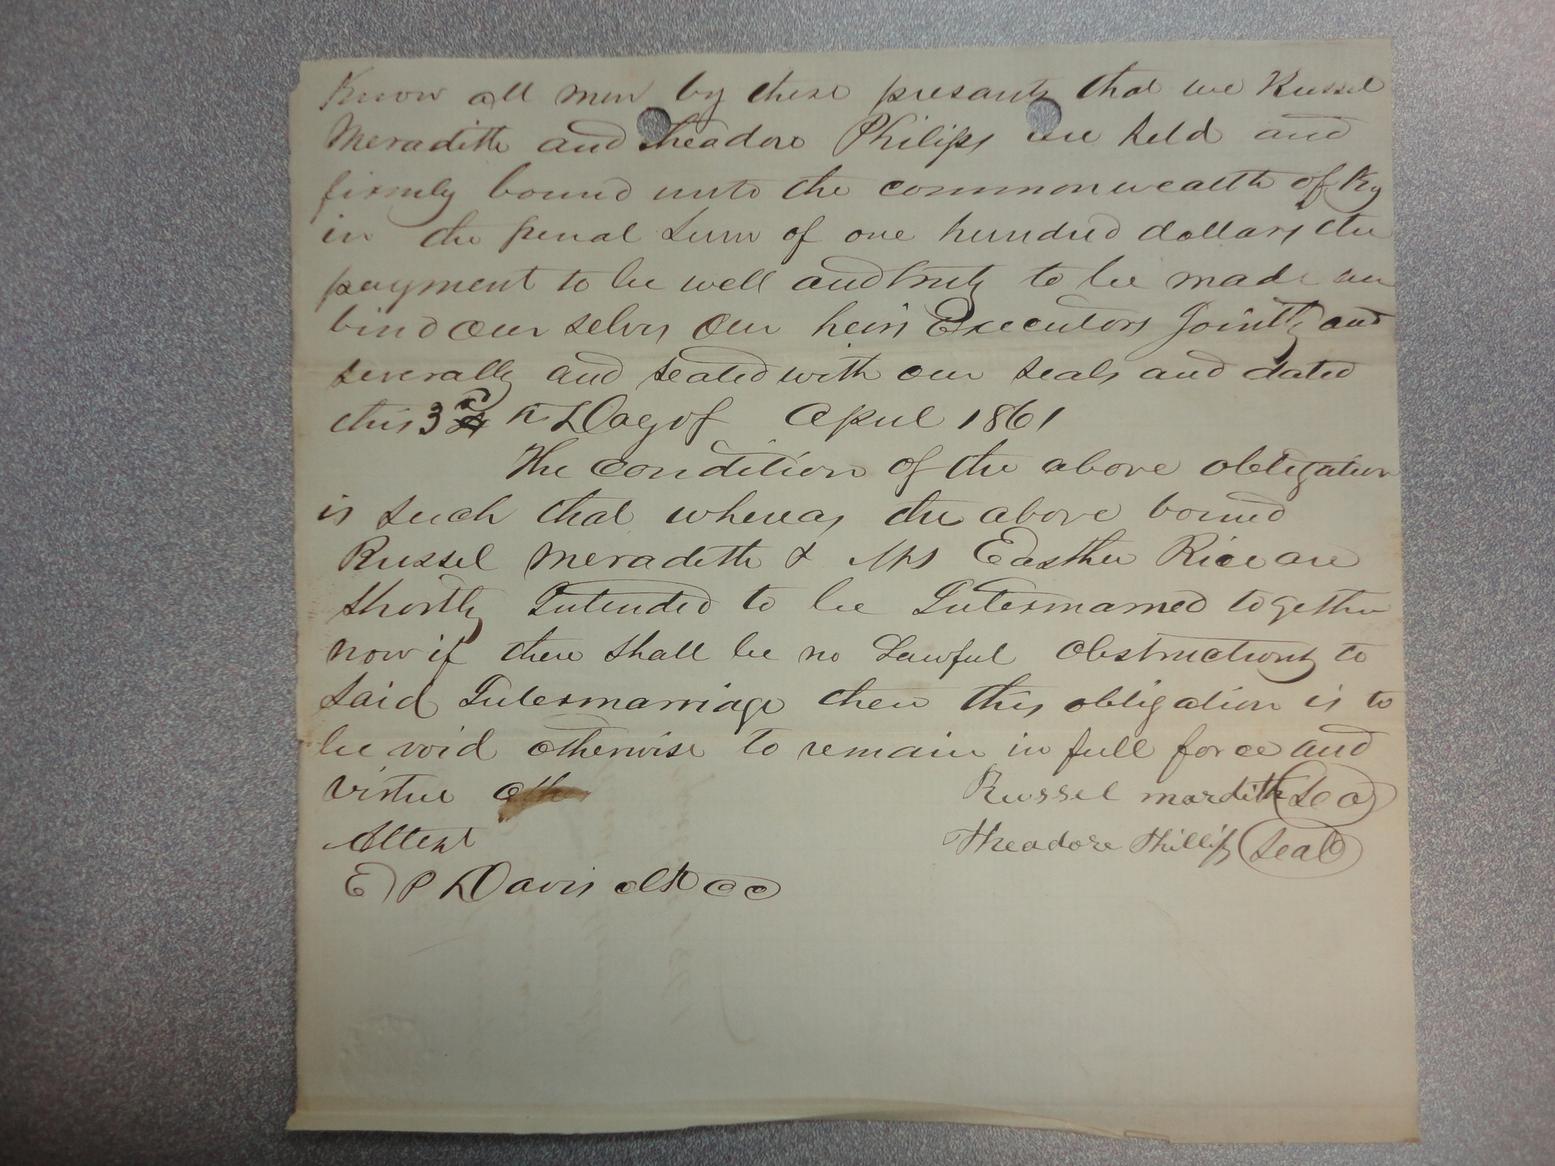 Know all men by these presants that we Russel
Meradith and Theadore Philips are held and
firmly bound unto the commonwealth of Ky
in the penal sum of one hundred dollars the
payment to be well and truly to be made we
bind our selvs our heirs Executors Jointly and
severally and sealed with our seals and dated
this 3rd Day of April 1861
The condition of the above obligation
is such that whereas the above bound
Russel Meradeth & Mrs Easther Rice are
shortly Intended to be Intermarried together
now if there shall be no Lawful obstructions to
said Intermarriage then this obligation is to
be void otherwise to remain in full force and
virtue
Russel mardith Sea
Attest
Theadore Phillips Seal
E P Davis clk